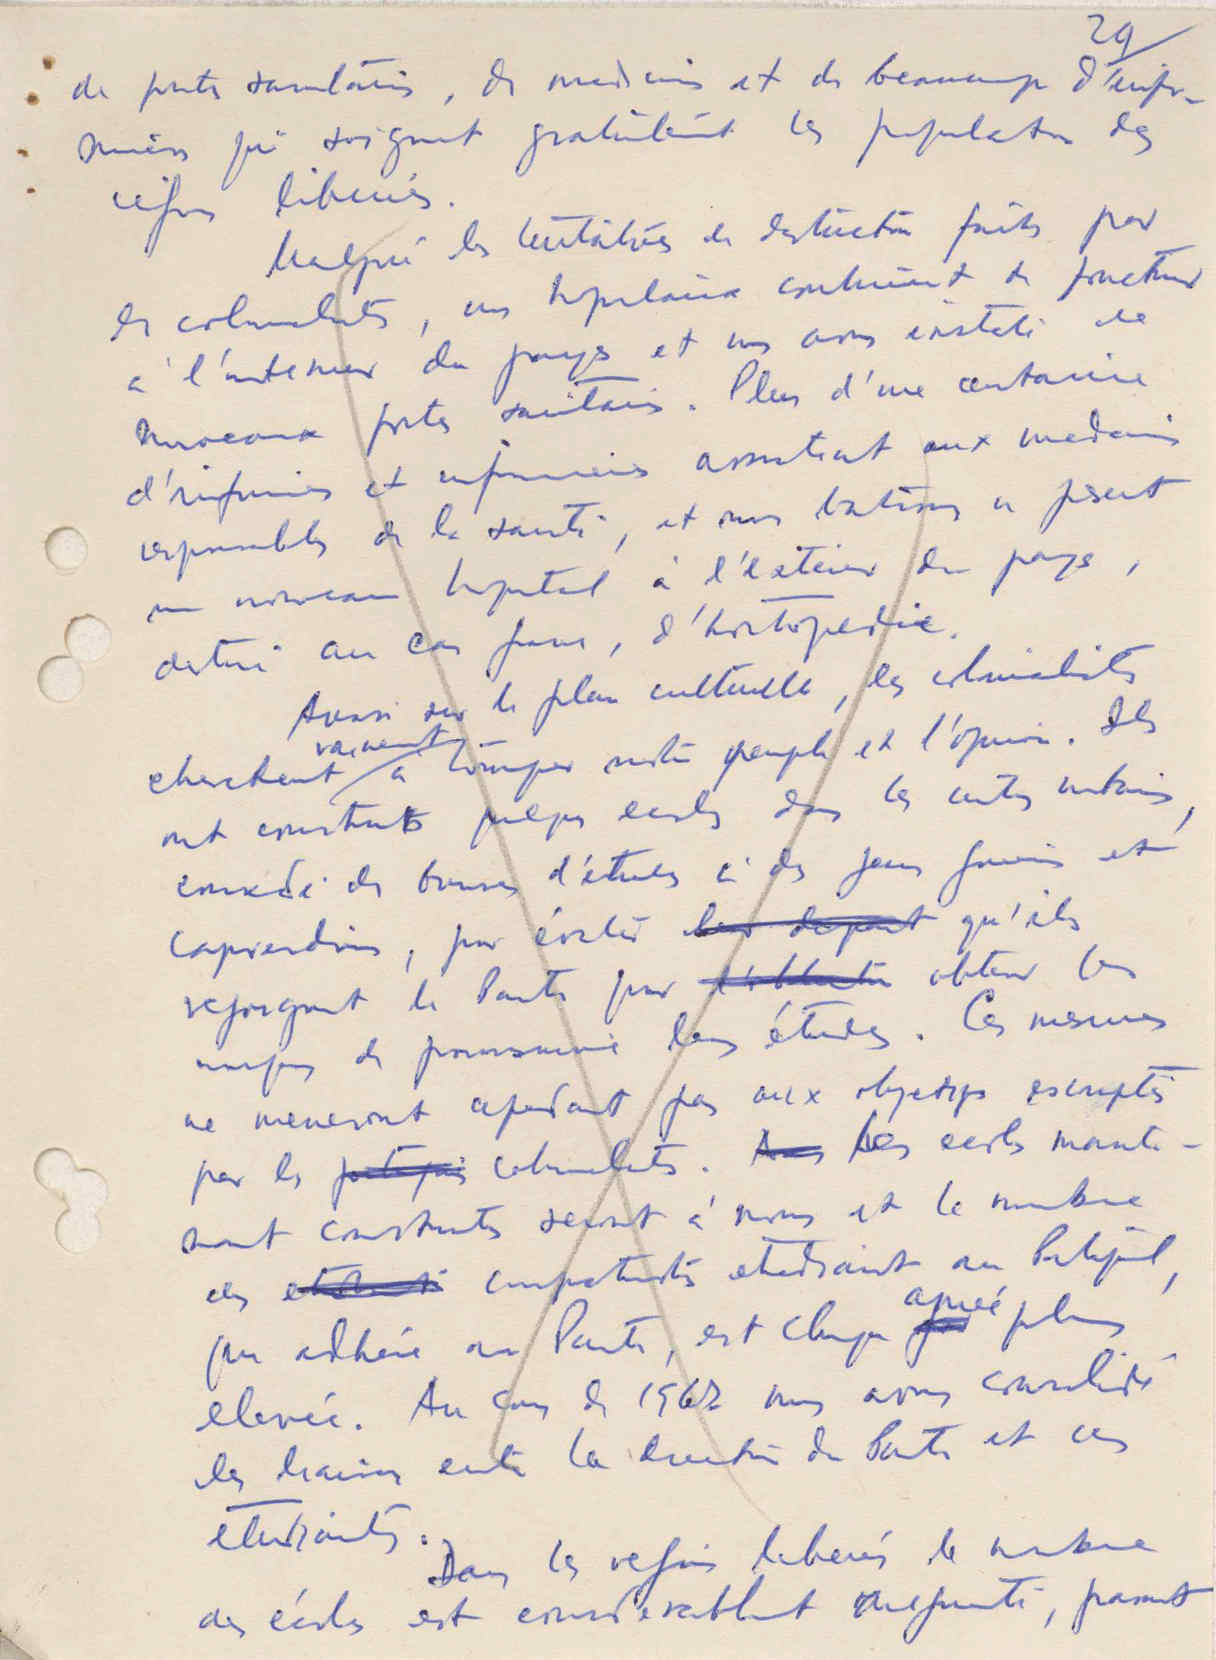 29
de postes sanitaires, de medecins et de beaucoup d'infir-
miers qui soignent gratuitement les population des
régions liberées.
Malgré les tentatives de destruction faites par
les colonialistes, nos hopitaux continuent de fonctionner
à l'interieur du pays et nous avons installé de
nouveaux postes sanitaires. Plus d'une centaine
d'infirmiers et infirmieres assistent aux medecins
responsables de la santé, et nous batissons en présent
un nouveau hopital à l'extérieur du pays,
destiné au cas graves, d'hortopedie.
Aussi sur le plan culturelle, les colonialistes
cherchent vainement à tromper notre peuple et l'opinion. Ils
ont construits quelques ecoles dans les centres urbains,
concédé des bourses d'études à des jeunes guinéens et
capverdiens, pour éviter leur depart qu'ils
rejoignent le Parti pour obtenir les
moyens de poursuivre leurs études. Ces mesures
ne meneront cependant pas aux objectifs escomptés
par les portugais colonialistes. Les ecoles mainte-
nant construites seront à nous et le nombre
des etudiants compatriotes etudiant au Portugal,
qui adhére au Parti, est chaque année plus
elevée. Au cours de 1967 nous avons consolidé
les liaisons entre la direction du Parti et ces
étudiants.
Dans les regions liberées le nombre
des écoles est considerablement augmenté, passant